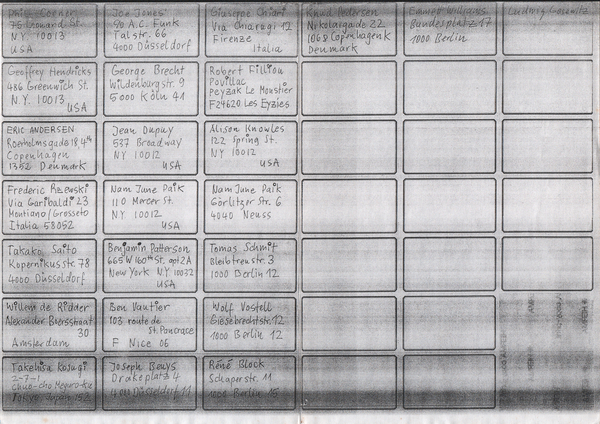 Philip Corner
75 Leonard St.
N.Y. 10013
USA
Joe Jones
c/o A.C. Funk
Talstr. 66
4000 Düsseldorf
Giuseppe Chiari
Via Chiaragi 12
Firenze
Italia
Knud Pedersen
Nikolajgade 22
1068 Copenhagen K
Denmark
Emmett Williams
Bundesplatz 17
1000 Berlin
Ludwig Gosewitz
Geoffrey Hendricks
486 Greenwich St.
N.Y. 10013
USA
George Brecht
Wildenburgstr. 9
5000 Köln 41
Robert Filliou
Povillac
Peyzak Le Moustier
F24620 Les Eyzies
ERIC ANDERSEN
1352 Denmark
Copenhagen
Jean Dupuy
537 Broadway
NY 10012
USA
Alison Knowles
122 Spring St.
NY 10012
USA
Frederic Rzewski
Via Garibaldi 23
Montiano/Grosseto
Italia 58052
Nam June Paik
110 Mercer St.
NY 10012
USA
Nam June Paik
Görlitzer Str. 6
4040 Neuss
Takako Saito
Kopernikusstr. 78
4000 Düsseldorf
Benjamin Patterson
665 W 160th St. apt 2A
New York NY 10032
USA
Tomas Schmit
Bleibtreustr. 3
1000 Berlin 12
Willem de Ridder
Alexander Boersstraat
30
Amsterdam
Ben Vautier
103 route de
St. Pancrace
F Nice 06
Wolf Vostell
Giesebrechtstr. 12
1000 Berlin 12
Takehisa Kosugi
2-7-1
Tokyo Japan 152
Joseph Beuys
Drakeplatz 4
4000 Düsseldorf 11
René Block
Schaperstr. 11
1000 Berlin 15